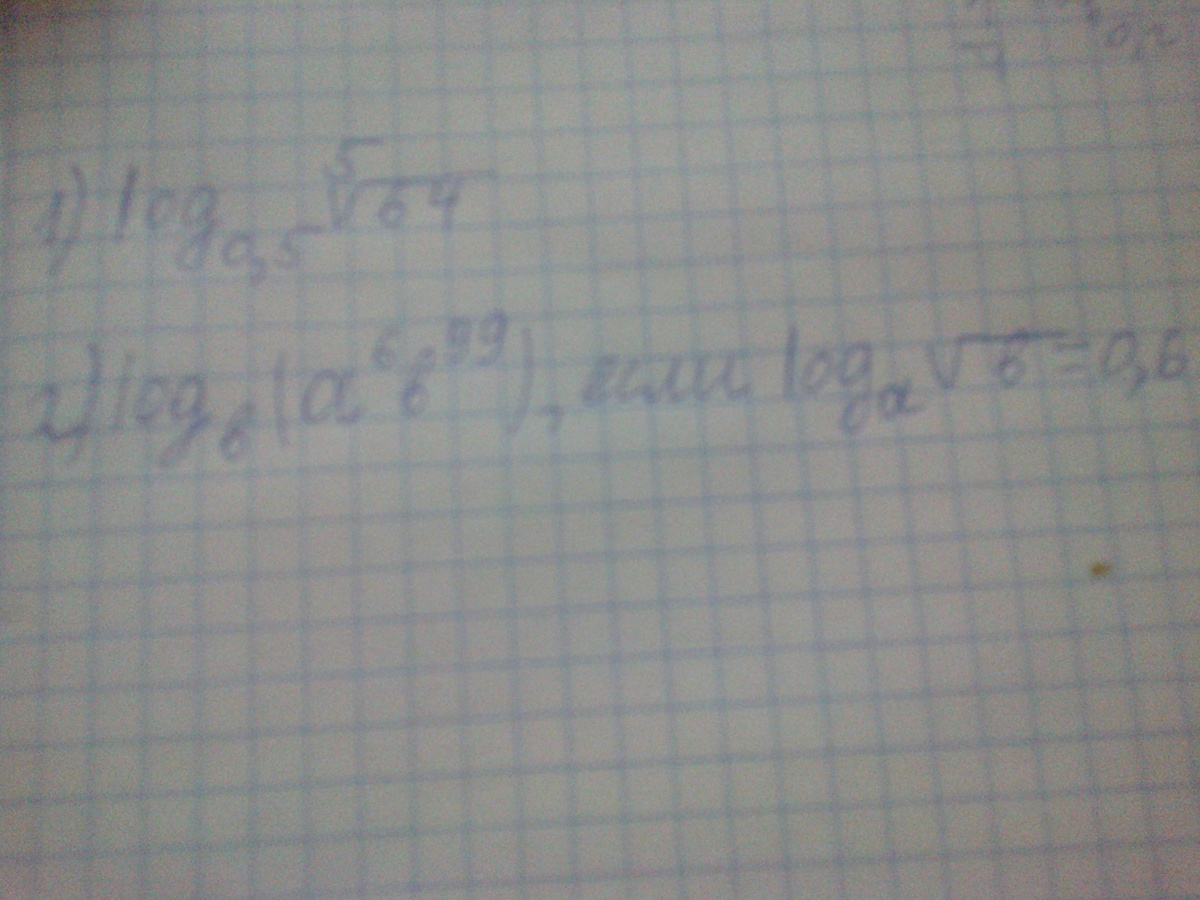 0,2
1) log₀,₅ ⁵√64
2) logв(a⁶в⁹⁹), если logₐ√в=0,6